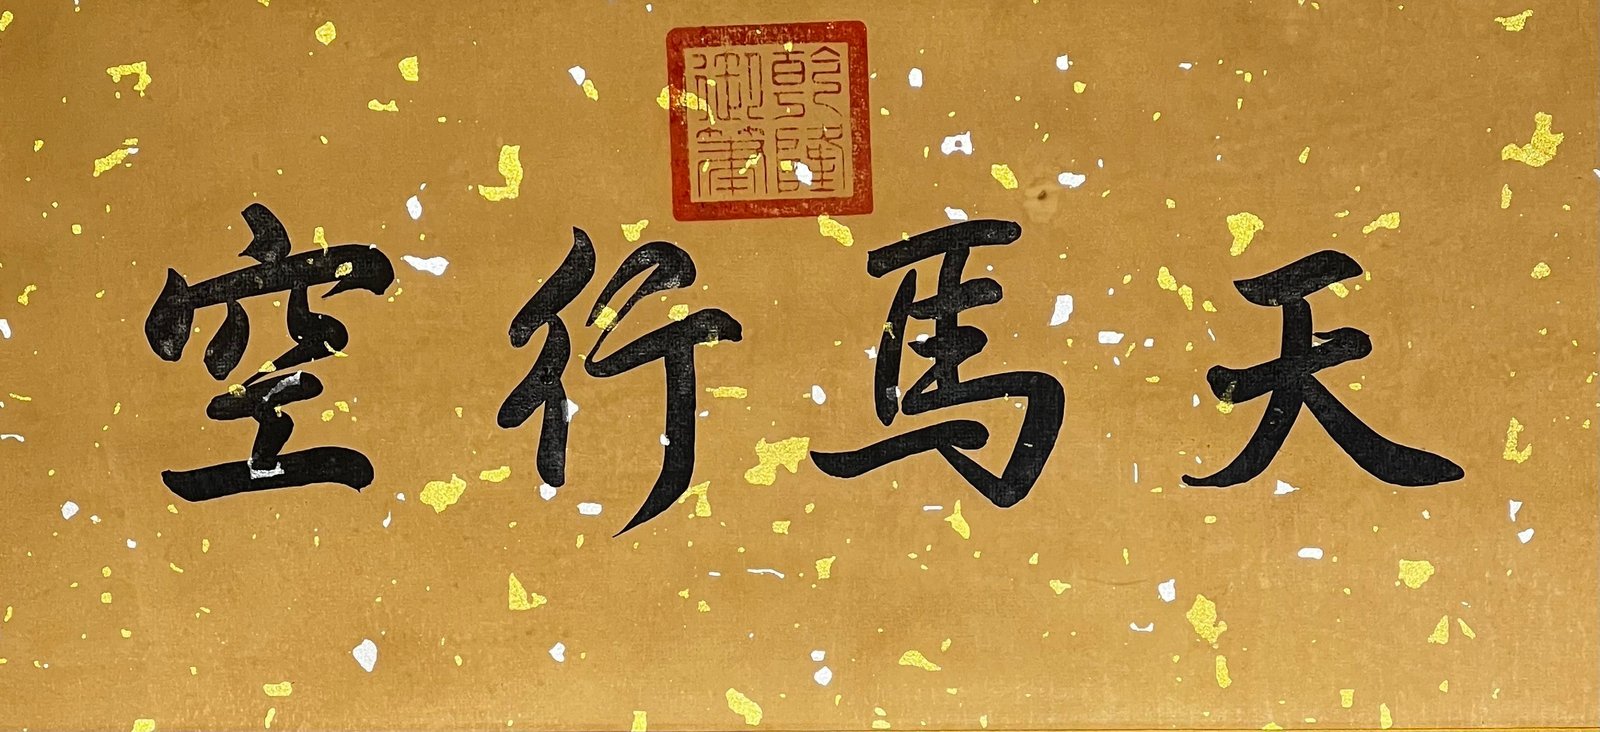 乾隆御筆
天馬行空